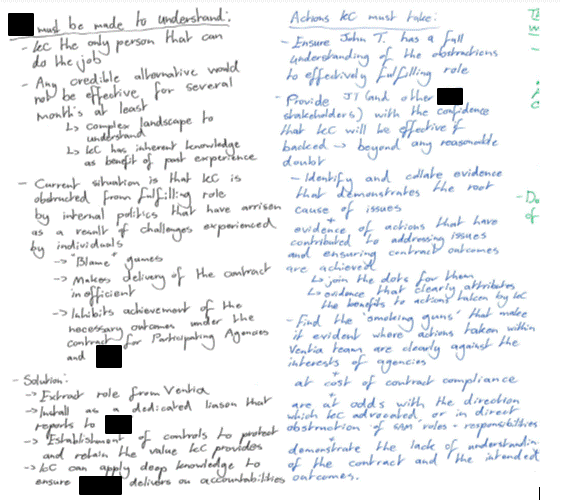 must be made to understand:
- KC the only person that can
do the job
- Any credible alternative would
not be effective for several
month's at least
↳ complex landscape to
understand
↳ KC has inherent knowledge
as benefit of past experience
- Current situation is that KC is
obstructed from fulfilling role
by internal politics that have arrisen
as a result of challenges experienced
by individuals
-> "Blame" games
-> Makes delivery of the contract
inefficient
-> Inhibits achievement of the
necessary outcomes under the
contract for Participating Agencies
and
- Solution:
-> Extract role from Ventia
-> Install as a dedicated liason that
reports to
-> Establishment of controls to protect
and retain the value KC provides
-> KC can apply deep knowledge to
ensure delivers on accountabilities
Actions KC must take:
- Ensure John T. has a full
understanding of the obstructions
to effectively fulfilling role
- Provide JT (and other
stakeholders) with the confidence
that KC will be effective if
backed -> beyond any reasonable
doubt
- Identify and collate evidence
that demonstrates the root
cause of issues
+
evidence of actions that have
contributed to addressing issues
and ensuring contract outcomes
are achieved
↳ join the dots for them
↳ evidence that clearly attributes
the benefits to actions taken by KC
- Find the 'smoking guns' that make
it evident where actions taken within
Ventia team are clearly against the
interests of agencies
+
at cost of contract compliance
+
are at odds with the direction
which KC advocated, or in direct
obstruction of SAM roles + responsibilities
+
demonstrate the lack of understandin
of the contract and the intended
outcomes.
- Do
of